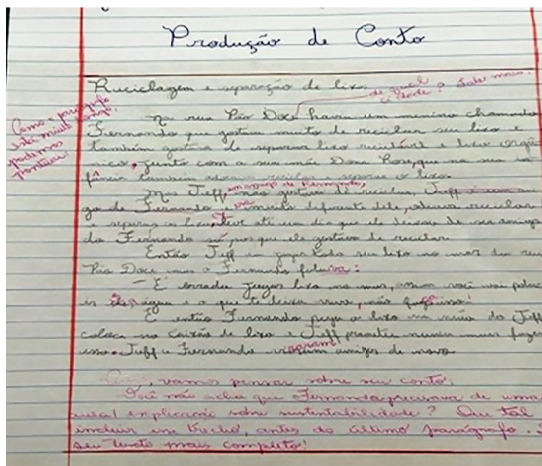 Produção de Conto
Reciclagem e separação de lixo
de qual
cidade? Date mais.
Como o parágrafo
está muito longo,
podemos
pontuar!
Na rua Pão Doce havia um menino chamado
Fernando que gostava muito de reciclar seu lixo e
também gostava de separar lixo reciclável e lixo orgâ
nico, junto com a sua mãe Dona Rose, que na sua in
fância também adorava reciclar e separar o lixo.
um amigo de Fernando,
Mas Jeff, não gostava de reciclar, Jeff
go de Fernando, era muito diferente dele, odiava reciclar
e separar o lixo. Teve até um dia que ele deixou de ser amigo
do Fernando só por que ele gostava de reciclar.
Então Jeff ia jogar todo seu lixo no mar da rua
Pão Doce mas o Fernando falava:
— É errado jogar lixo no mar, assim você vai polu
ir a água e o que te deixa vivo, não faça isso!
E então Fernando pegou o lixo na mão do Jeff
colocou na caixa de lixo e Jeff prometeu nunca mais fazer
isso. Jeff e Fernando viraram amigos de novo.
vamos pensar sobre seu conto.
Você não acha que Fernando precisava de uma
explicação sobre sustentabilidade? Que tal
incluir esse trecho, antes do último parágrafo.
Seu texto mais completo!